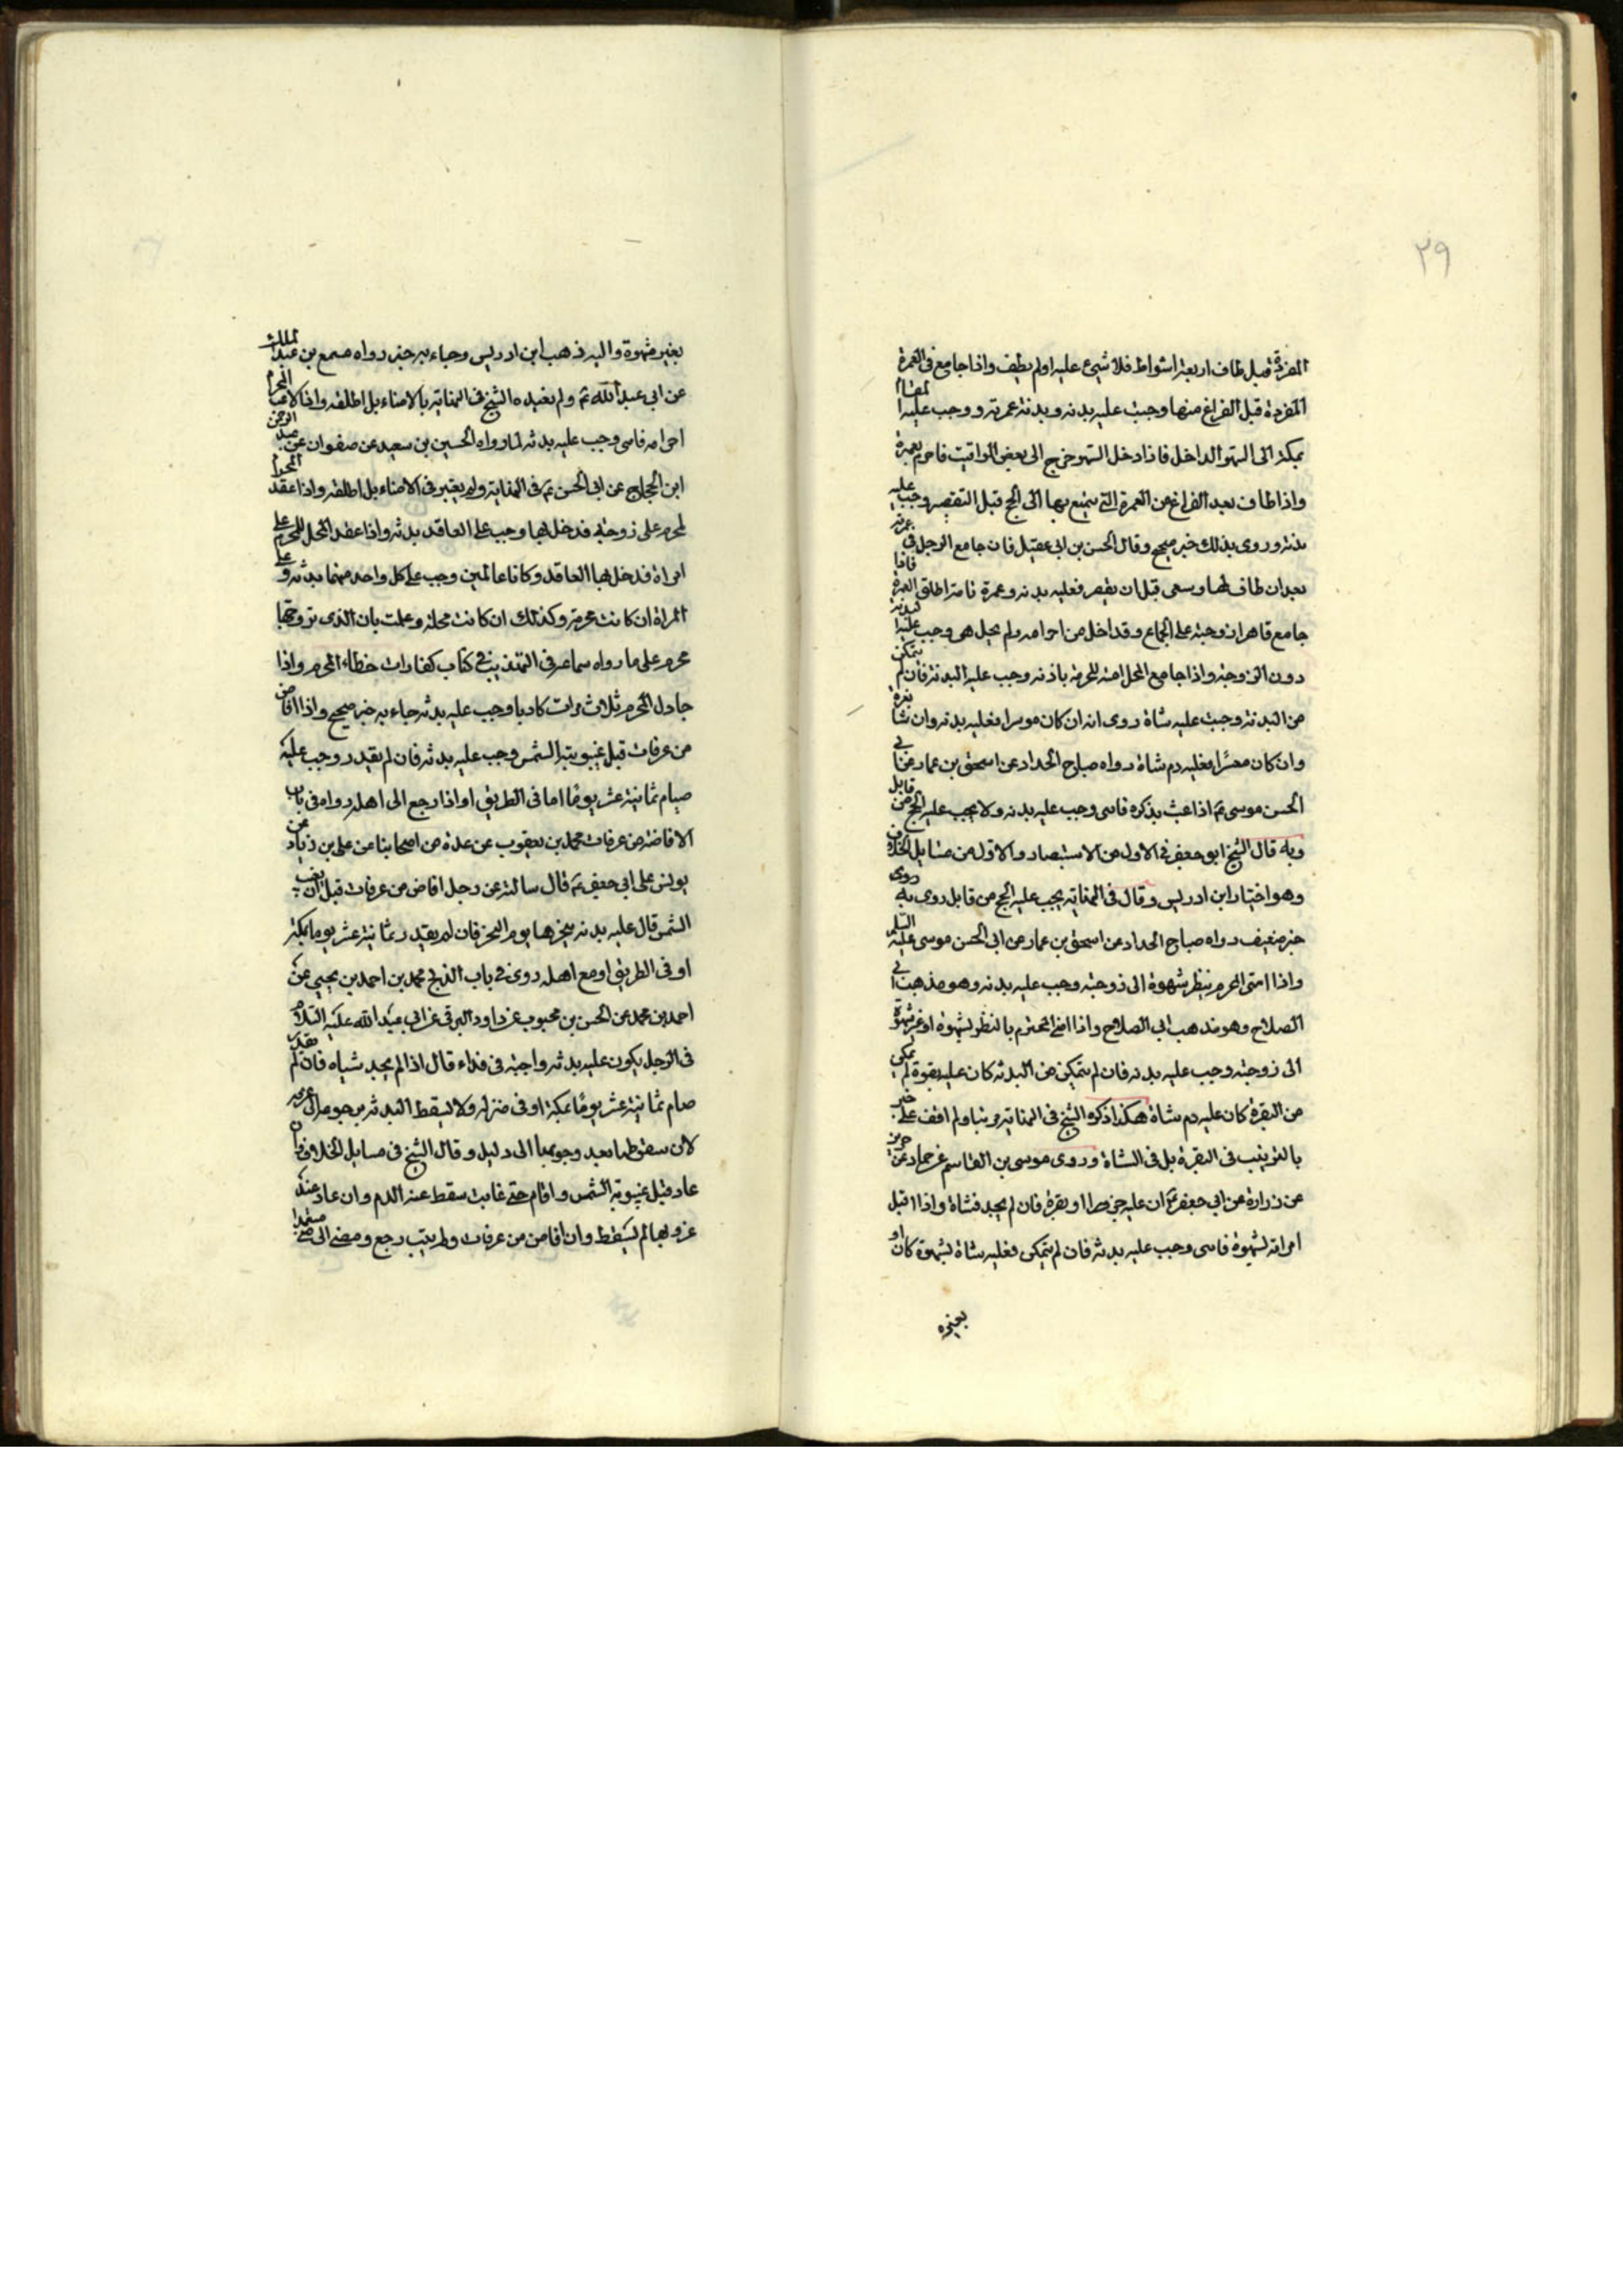 ٢٩
المفردة قبل طاف اربعة اشواط فلا شيئ عليه اولم يطف واذا جامع فى العمرة
المفردة قبل الفراغ منها وجبت عليه بدنه وبدنة عمرته ووجب عليه المقام
بمكة الى الشهر الداخل فاذا دخل الشهر خرج الى بعض المواقيت فاحرم بعمرة
واذا طاف بعد الفراغ من العمرة التى يتمتع بها الى الحج قبل التقصير وجب عليه
بدنة وروى بذلك خبر صحيح وقال الحسن بن ابى عقيل فان جامع الرجل فى عمرته
بعد ان طاف لها وسعى قبل ان يقصر فعليه بدنه وعمرة تامة اطلق العمرة فاذا
جامع قاهرا زوجته على الجماع وقد احل من احرامه ولم يحل هى وجب عليه البدنة
دون الزوجة واذا جامع المحل امته المحرمة باذنه وجب عليه البدنة فان لم يتمكن
من البدنة وجبت عليه شاة روى انه ان كان موسرا فعليه بدنه وان شا بقرة
وان كان معسرا فعليه دم شاة رواه صباح الحداد عن اسحق بن عمار عن ابى
الحسن موسى ع‍ اذا عبث بذكره فامنى وجب عليه بدنه ولا يجب عليه الحج من قابل
وبه قال الشيخ ابو جعفر فى الاول من الاستبصار والاول من مسايل الخلاف
وهو اختيار ابن ادريس وقال فى النهاية يجب عليه الحج من قابل روى به روى
خبر ضعيف رواه صباح الحداد عن اسحق بن عمار عن ابى الحسن موسى عليه السلم
واذا امنى المحرم بنظر شهوة الى زوجته وجب عليه بدنه وهو مذهب ابى
الصلاح وهو مذهب ابى الصلاح واذا امنى المحرم بالنظر لشهوة او غير شهوة
الى زوجته وجب عليه بدنه فان لم يتمكن من البدنه كان عليه بقرة لم يمكن
من البقرة كان عليه دم شاة هكذا ذكره الشيخ فى النهاية مرتبا ولم اقف على خبر
بالترتيب فى البقرة بل فى الشاة وروى موسى بن القاسم عن حماد عن حريز
عن زرارة عن ابى جعفر ع‍ ان عليه جزورا او بقرة فان لم يجد فشاة واذا اقبل
امراته لشهوة فامنى وجب عليه بدنة فان لم يتمكن فعليه شاة لشهوة كان او
بغيره
بغير شهوة واليه ذهب ابن ادريس وجاء به خبر رواه مسمع بن عبد الملك
عن ابى عبد الله ع‍ ولم يقيده الشيخ فى النهاية بالامناء بل اطلقه واذا لاعب المحرم
امرامه فامنى وجب عليه بدنة لما رواه الحسين بن سعيد عن صفوان عن عبد الرحمن
ابن الحجاج عن ابى الحسن ع‍ فى النهاية ولم يعتبر فى الامناء بل اطلقه واذا عقد المحرم
لمحرم على زوجة فدخل بها وجب على العاقد بدنة واذا عقد المحل للمحرم على
امراة فدخل بها العاقد وكانا عالمين وجب على كل واحد منهما بدنة وعلى
المراة ان كانت محرمة وكذلك ان كانت محلة وعلمت بان الذى تزوجها
محرم على ما رواه سماعة فى التهذيب فى كتاب كفارات خطاء المحرم واذا
جادل المحرم ثلاث مرات كاذبا وجب عليه بدنة جاء به خبر صحيح واذا افاض
من عرفات قبل غيبوبة الشمس وجب عليه بدنة فان لم يقدر وجب عليه
صيام ثمانية عشر يومًا اما فى الطريق او اذا رجع الى اهله رواه فى باب
الافاضة من عرفات محمد بن يعقوب عن عدة من اصحابنا عن على بن زياد عن
يونس على ابى جعفر ع‍ قال سالته عن رجل افاض من عرفات قبل ان يغيب
الشمس قال عليه بدنه ينحرها يوم النحر فان لم يقدر ثمانية عشر يوما بمكة
او فى الطريق او مع اهله روى فى باب الذبح محمد بن احمد بن يحيى عن
احمد بن محمد عن الحسن بن محبوب عن داود البرقى عن ابى عبد الله عليه السلام
فى الرجل يكون عليه بدنة واجبة فى فداء قال اذا لم يجد شياه فان لم يقدر
صام ثمانية عشر يومًا بمكة او فى منزله ولا يسقط البدنة برجوعه الى عرفه
لان سقوطها بعد وجوبها الى دليل وقال الشيخ فى مسايل الخلاف فان
عاد قبل غيبوبة الشمس واقام حتى غابت سقط عنه الدم وان عاد عند
غروبها لم يسقط وان افاض من عرفات وطريب رجع ومضى الى